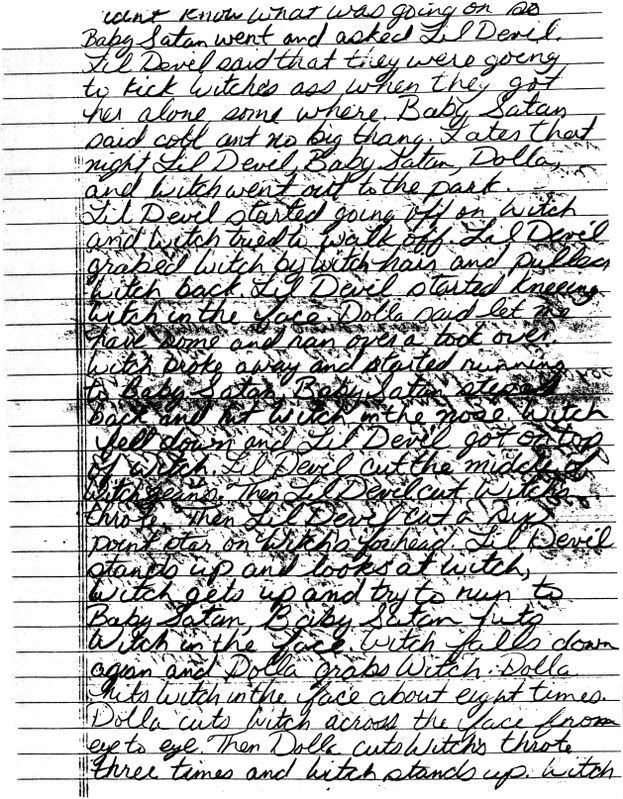 want know what was going on so
Baby Satan went and asked Lil Devil.
Lil Devil said that they were going
to kick witch's ass when they got
her alone some where. Baby Satan
said cool ant no big thang. Later that
night Lil Devil, Baby Satan, Dolla,
and witch went out to the park.
Lil Devil started going off on witch
and witch tried to walk off. Lil Devil
grabed witch by witch hair and pulled
witch back. Lil Devil started kneeing
witch in the face. Dolla said let me
have some and ran over a took over.
witch broke away and started running
to Baby Satan. Baby Satan
back and hit witch in the nose. witch
fell down and Lil Devil got on top
of witch. Lil Devil cut the middle of
witch jeans. Then Lil Devil cut witch's
throte. Then Lil Devil cut a six
point star on witch's forhead. Lil Devil
stands up and looks at witch,
witch gets up and try to run to
Baby Satan, Baby Satan hits
witch in the face. witch falls down
agian and Dolla grabs witch. Dolla
hits witch in the face about eight times.
Dolla cuts witch across the face from
eye to eye. Then Dolla cuts witch's throte
three times and witch stands up. witch